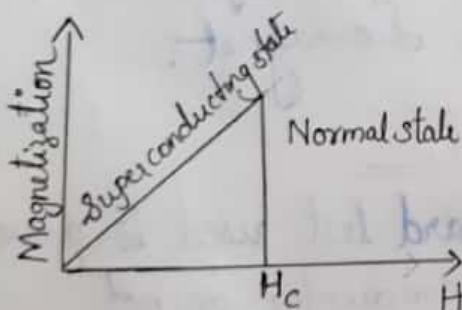 Magnetization
Superconducting state
Normal state
Hc
H